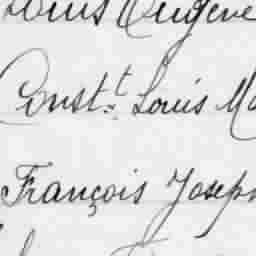 Louis Eugène
Const.t Louis Ma
François Joseph